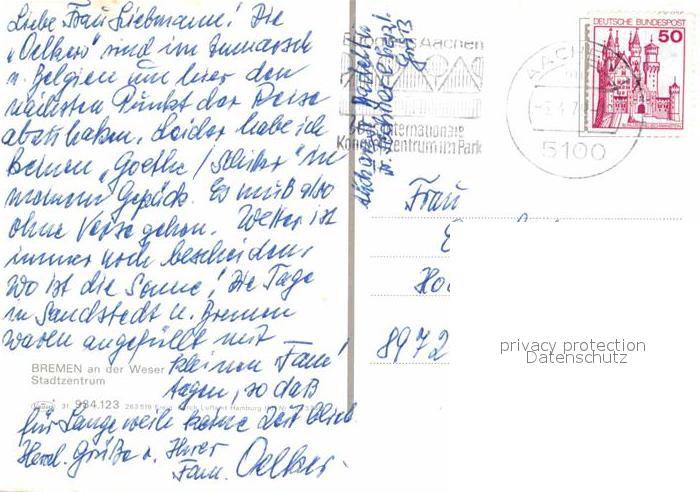 Liebe Frau Liebmann! Die
„Oelkers" sind im Anmarsch
n. Belgien um hier den
nächsten Punkt der Reise
abzuhaken. Leider habe ich
keinen „Goethe / Schiller" in
meinem Gepäck. Es muß also
ohne Verse gehen. Wetter ist
immer noch bescheiden,
wo ist die Sonne! Die Tage
in Sandstedt u. Bremen
waren angefüllt mit
kleinen Fami
tagen, so daß
für Langeweile keine Zeit blieb.
Herzl. Grüße v. Ihrer
Fam. Oelker.
BREMEN an der Weser
Stadtzentrum
31 934.123
Luftamt Hamburg
Aachen
Internationale
Kongreßzentrum im Park
AACHEN
5100
DEUTSCHE BUNDESPOST
50
Frau
Ho
8972
privacy protection
Datenschutz